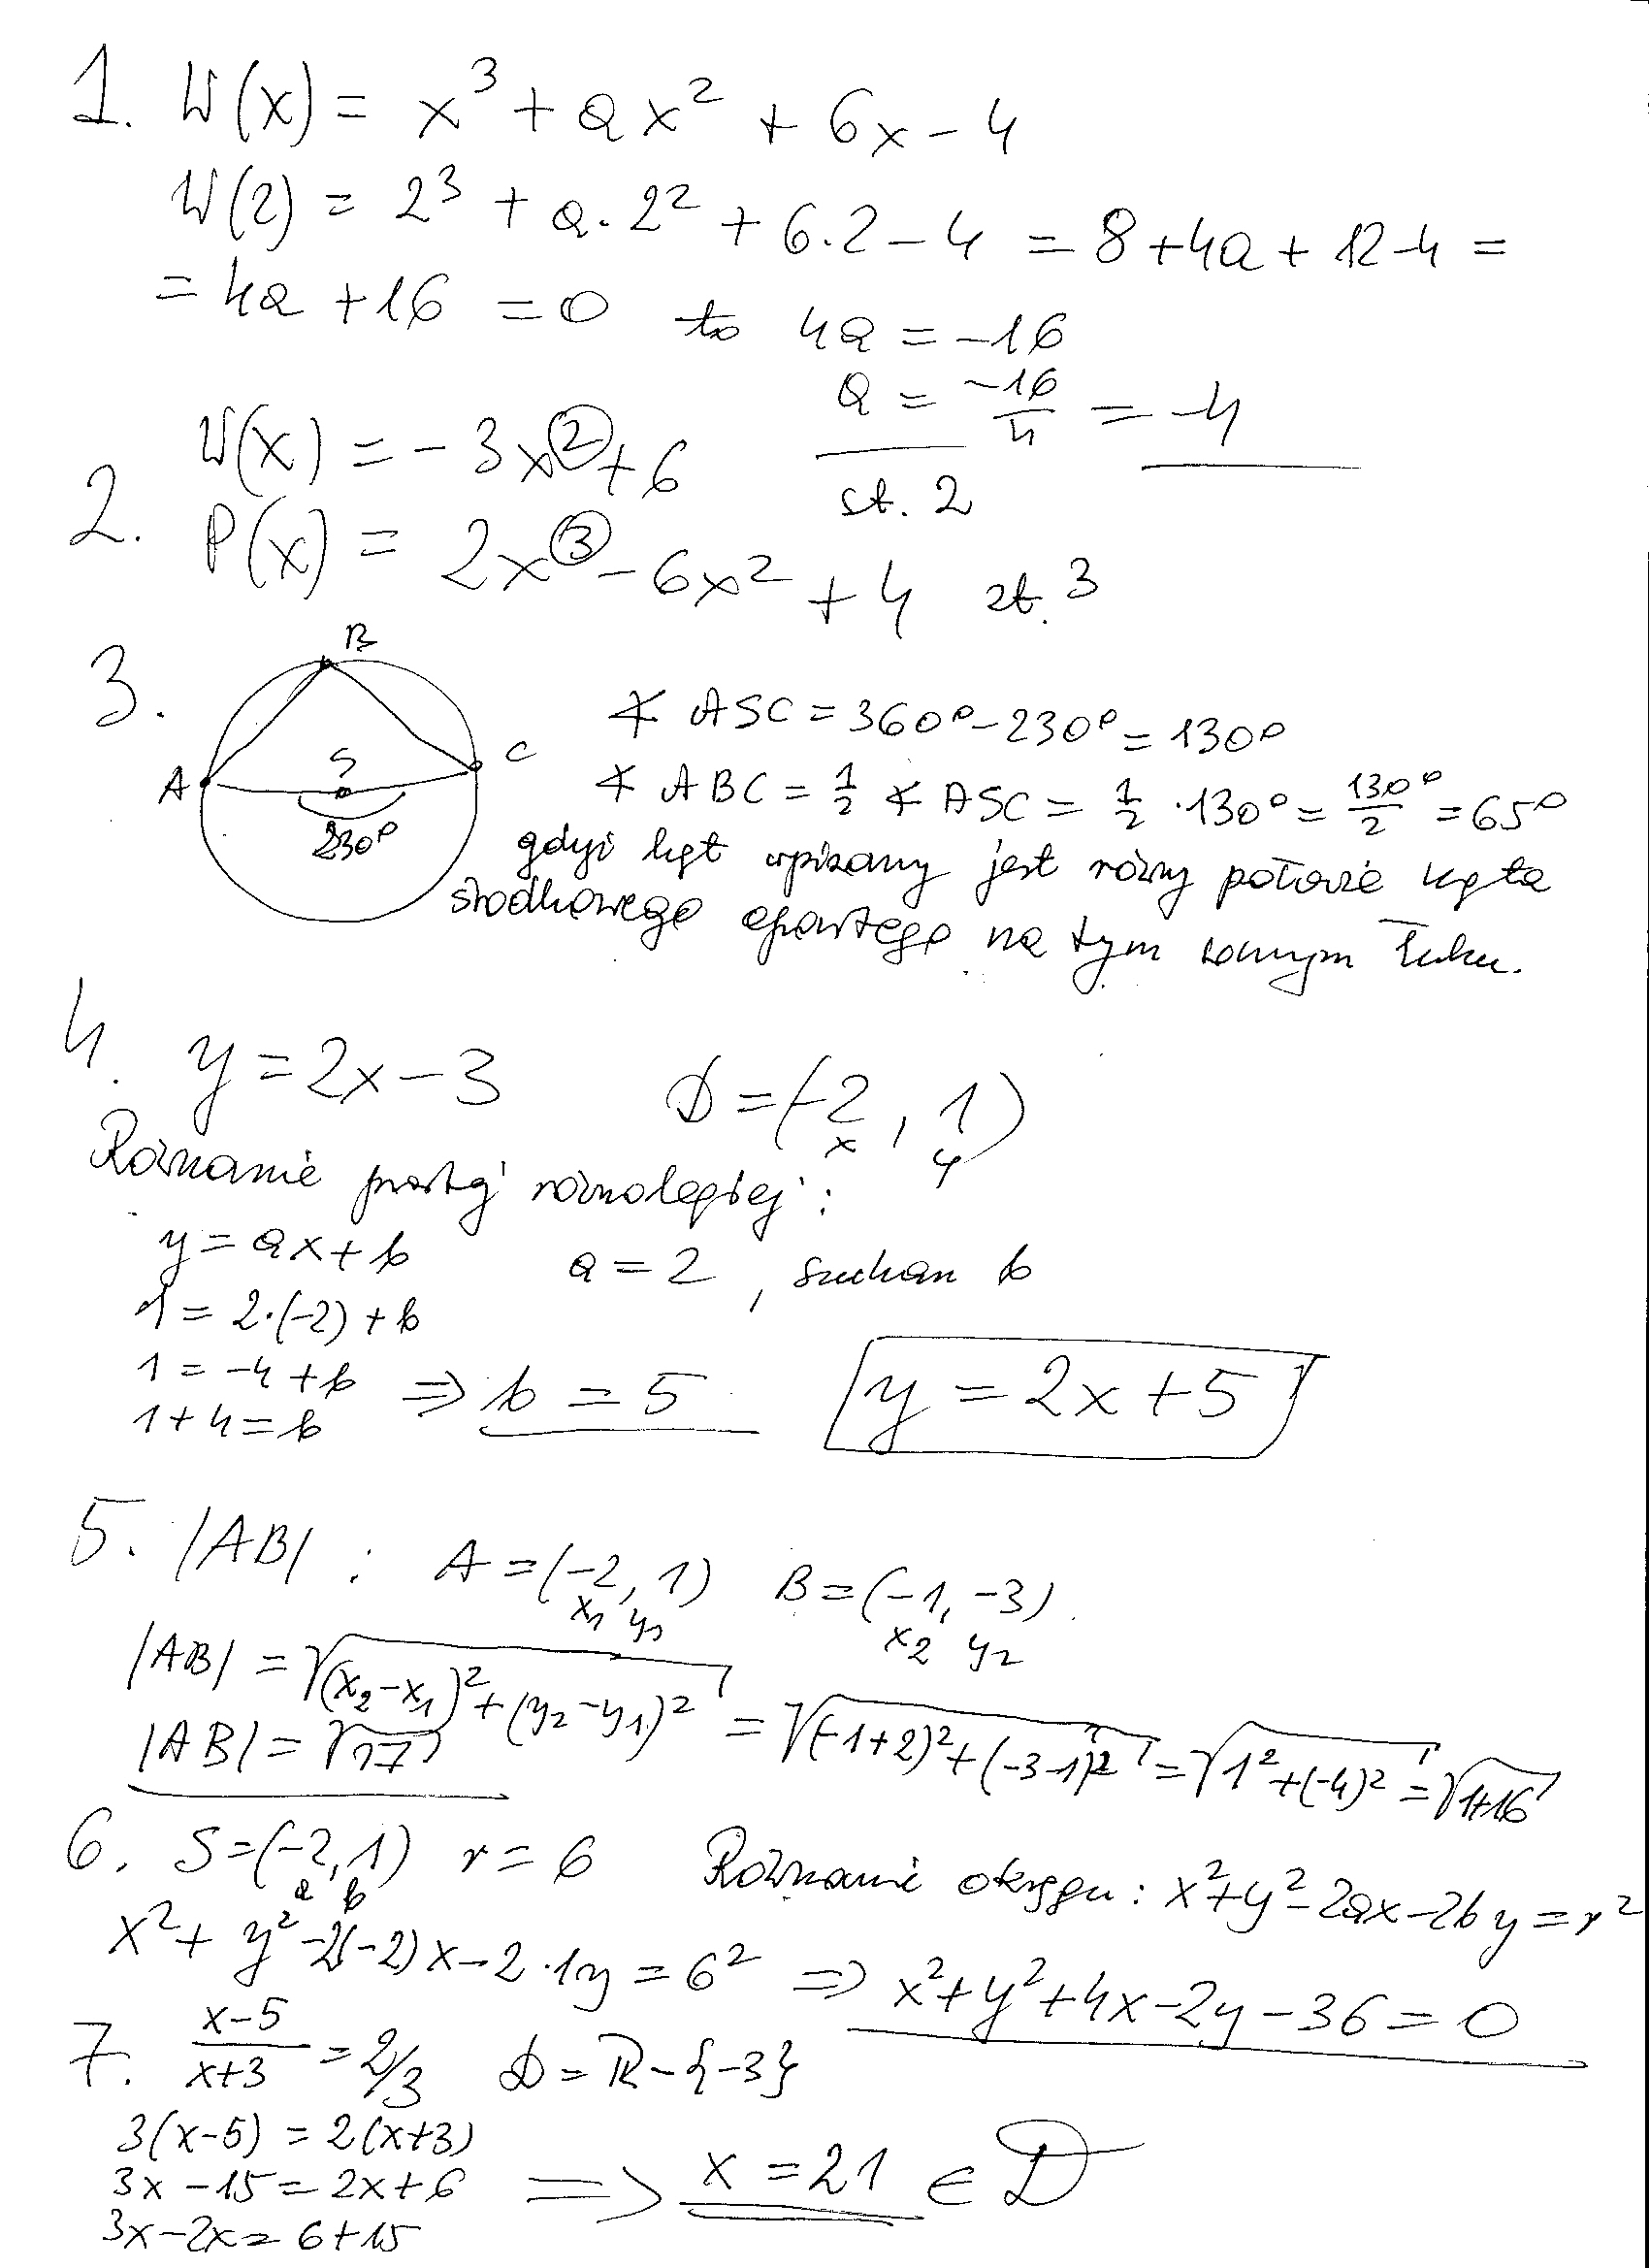 1. W(x) = x³ + ax² + 6x - 4
W(2) = 2³ + a·2² + 6·2 - 4 = 8 + 4a + 12 - 4 =
= 4a + 16 = 0 to 4a = -16
a = -16/4 = -4
2. W(x) = -3x² + 6 st. 2
P(x) = 2x³ - 6x² + 4 st. 3
3. B
A S C
230°
∢ ASC = 360° - 230° = 130°
∢ ABC = 1/2 ∢ ASC = 1/2 · 130° = 130°/2 = 65°
gdyż kąt wpisany jest równy połowie kąta
środkowego opartego na tym samym łuku.
4. y = 2x - 3 D = (-2, 1)
x y
Równanie prostej równoległej:
y = ax + b a = 2, szukam b
1 = 2·(-2) + b
1 = -4 + b ⇒ b = 5 y = 2x + 5
1 + 4 = b
5. |AB| : A = (-2, 1) B = (-1, -3)
x₁ y₁ x₂ y₂
|AB| = √(x₂-x₁)² + (y₂-y₁)² = √(-1+2)² + (-3-1)² = √1² + (-4)² = √1+16
|AB| = √17
6. S = (-2, 1) r = 6 Równanie okręgu: x² + y² - 2ax - 2by = r²
a b
x² + y² - 2(-2)x - 2·1y = 6² ⇒ x² + y² + 4x - 2y - 36 = 0
7. x-5/x+3 = 2/3 D = R - {-3}
3(x-5) = 2(x+3)
3x - 15 = 2x + 6 ⇒ x = 21 ∈ D
3x - 2x = 6 + 15